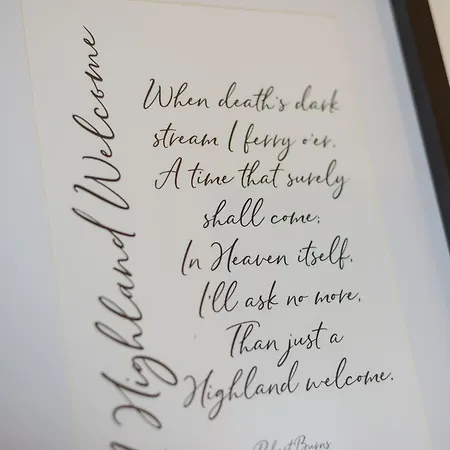 Highland Welcome
When death's dark
stream I ferry o'er.
A time that surely
shall come;
In Heaven itself,
I'll ask no more,
Than just a
Highland welcome.
Robert Burns